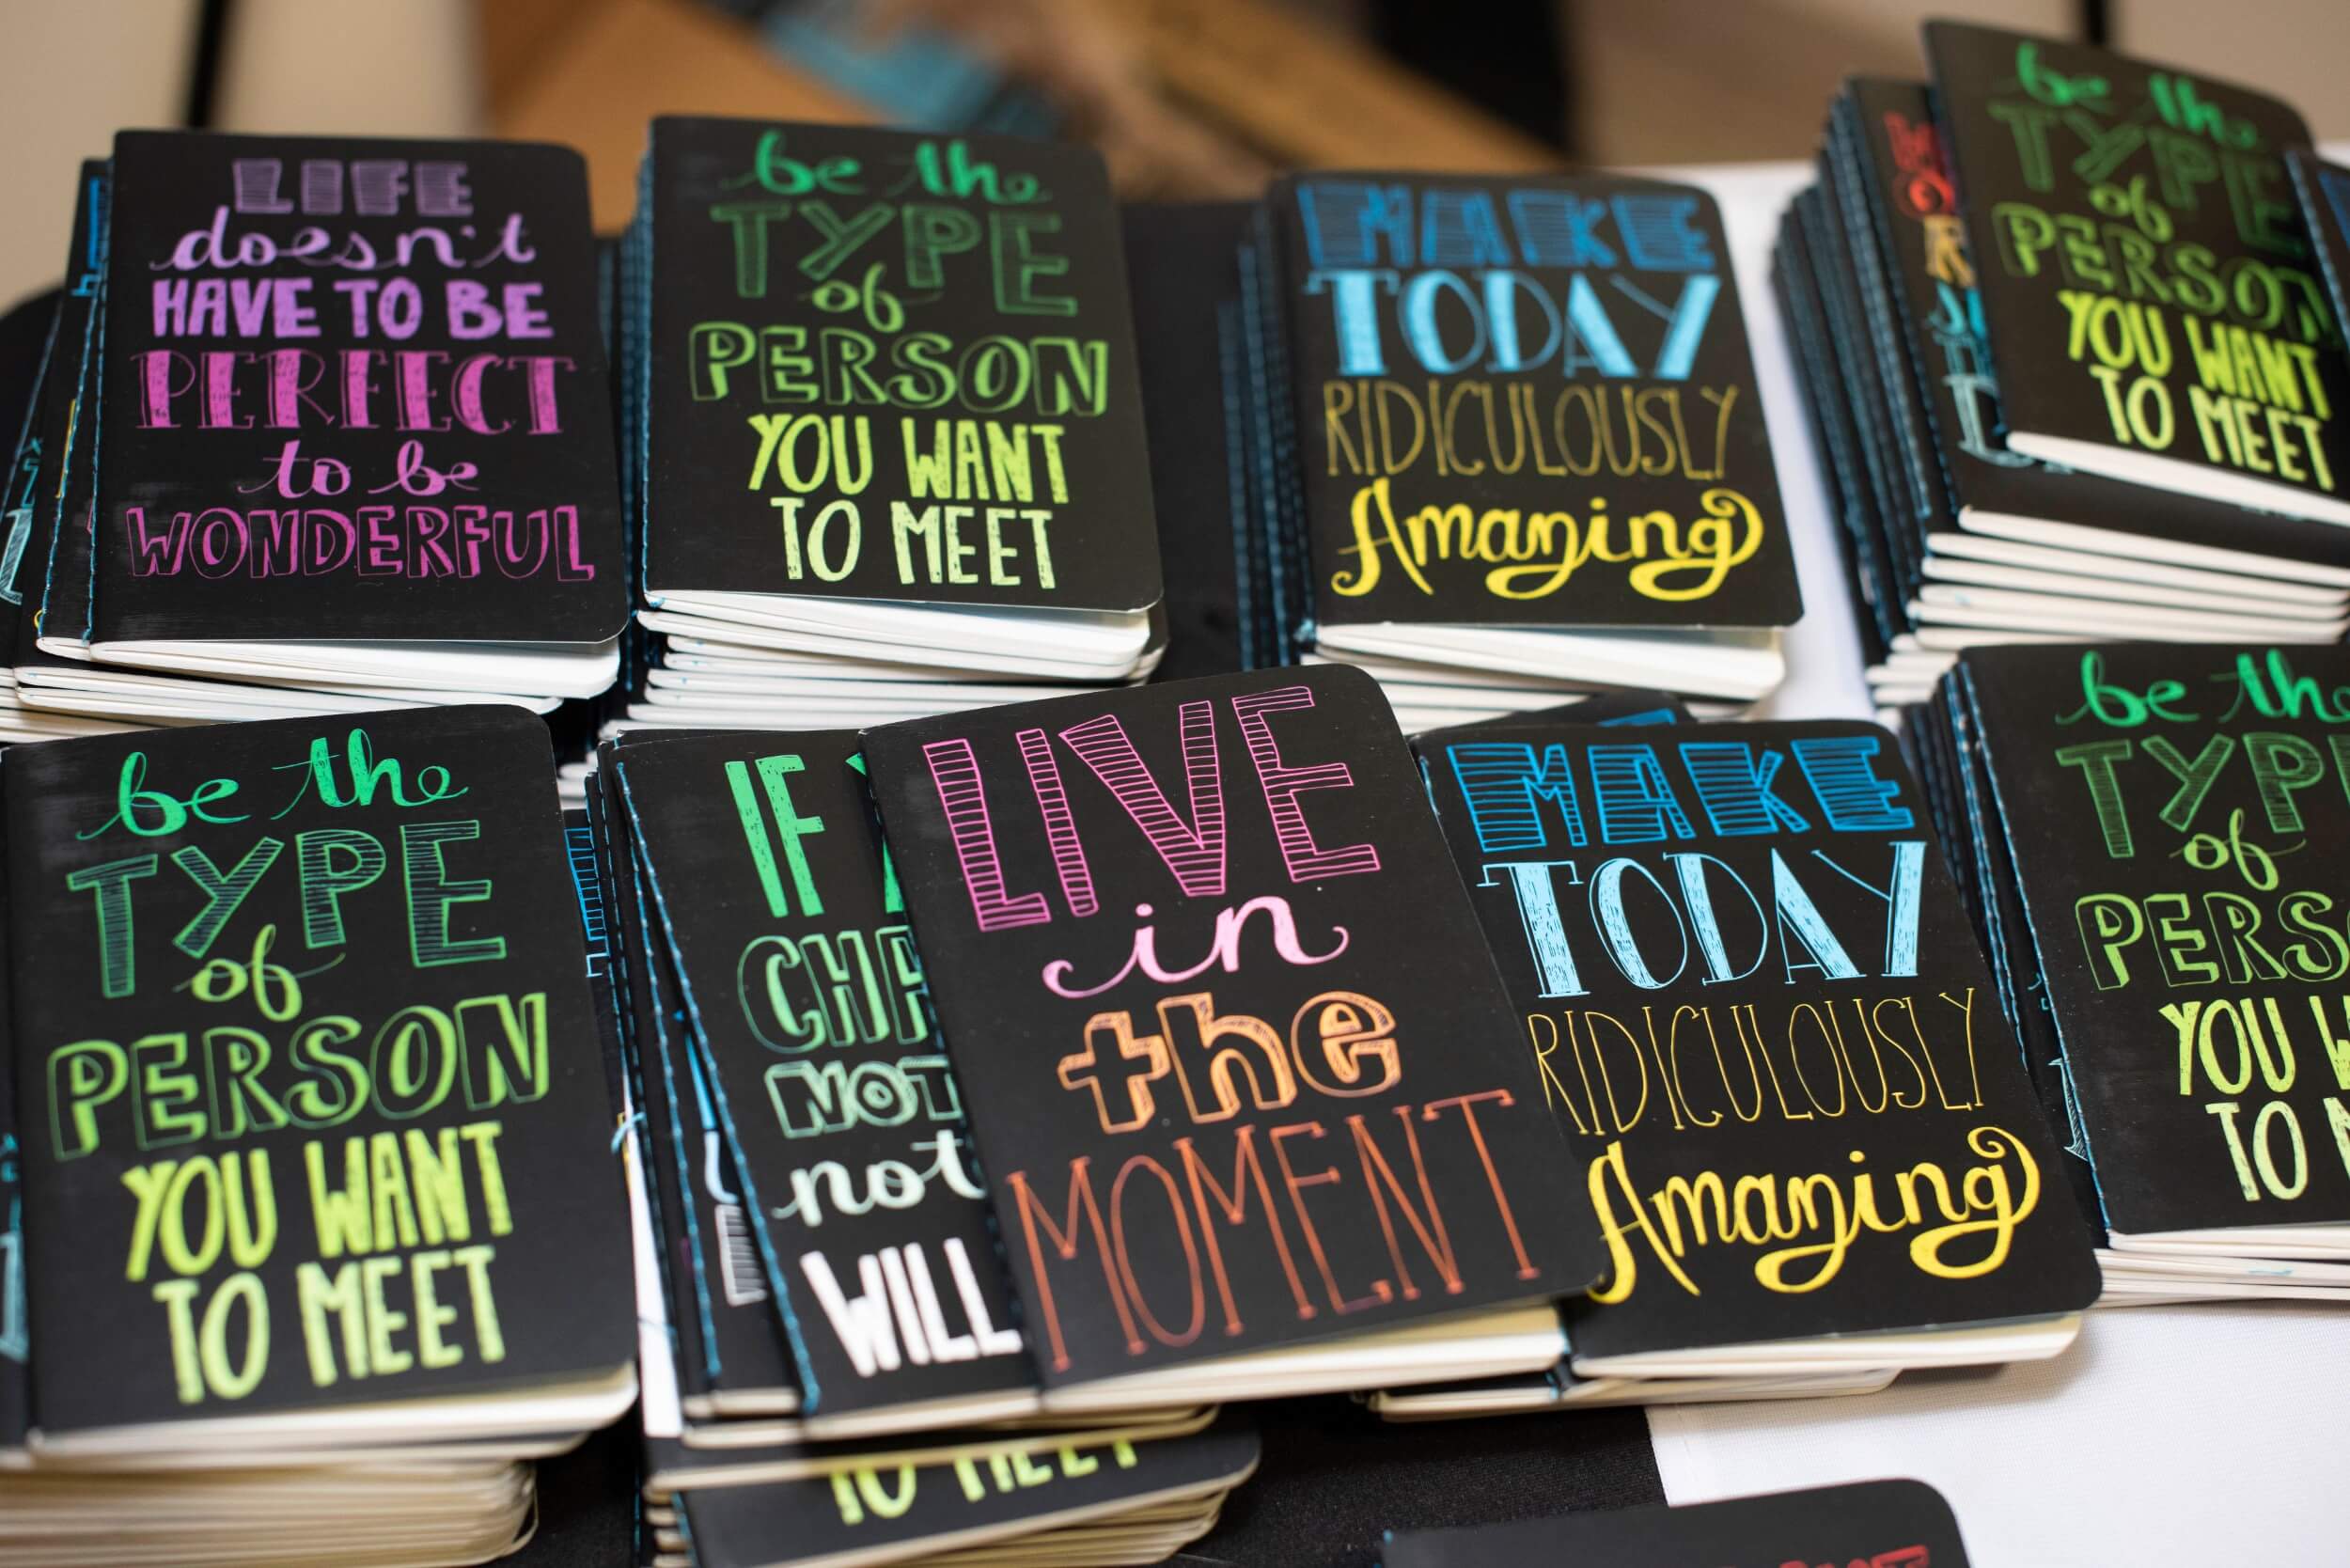 LIFE
doesn't
HAVE TO BE
PERFECT
to be
WONDERFUL
be the
TYPE
of
PERSON
YOU WANT
TO MEET
MAKE
TODAY
RIDICULOUSLY
Amazing
be the
TYPE
of
PERSON
YOU WANT
TO MEET
be the
TYPE
of
PERSON
YOU WANT
TO MEET
IF
NOT
not
WILL
LIVE
in
the
MOMENT
MAKE
TODAY
RIDICULOUSLY
Amazing
be the
TYPE
of
PERS
YOU W
TO
TO MEET